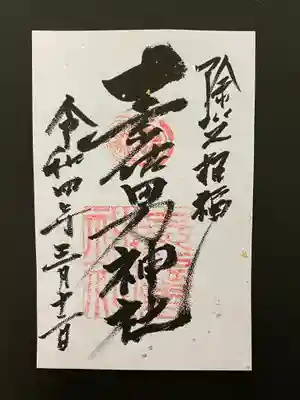 除災招福
男神社
令和四年三月十二日